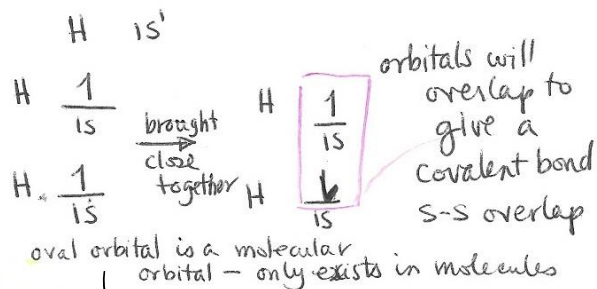 H 1s¹
H 1 1s
H 1 1s
brought
close
together
H 1 1s
H 1s
orbitals will
overlap to
give a
covalent bond
s-s overlap
oval orbital is a molecular
orbital - only exists in molecules